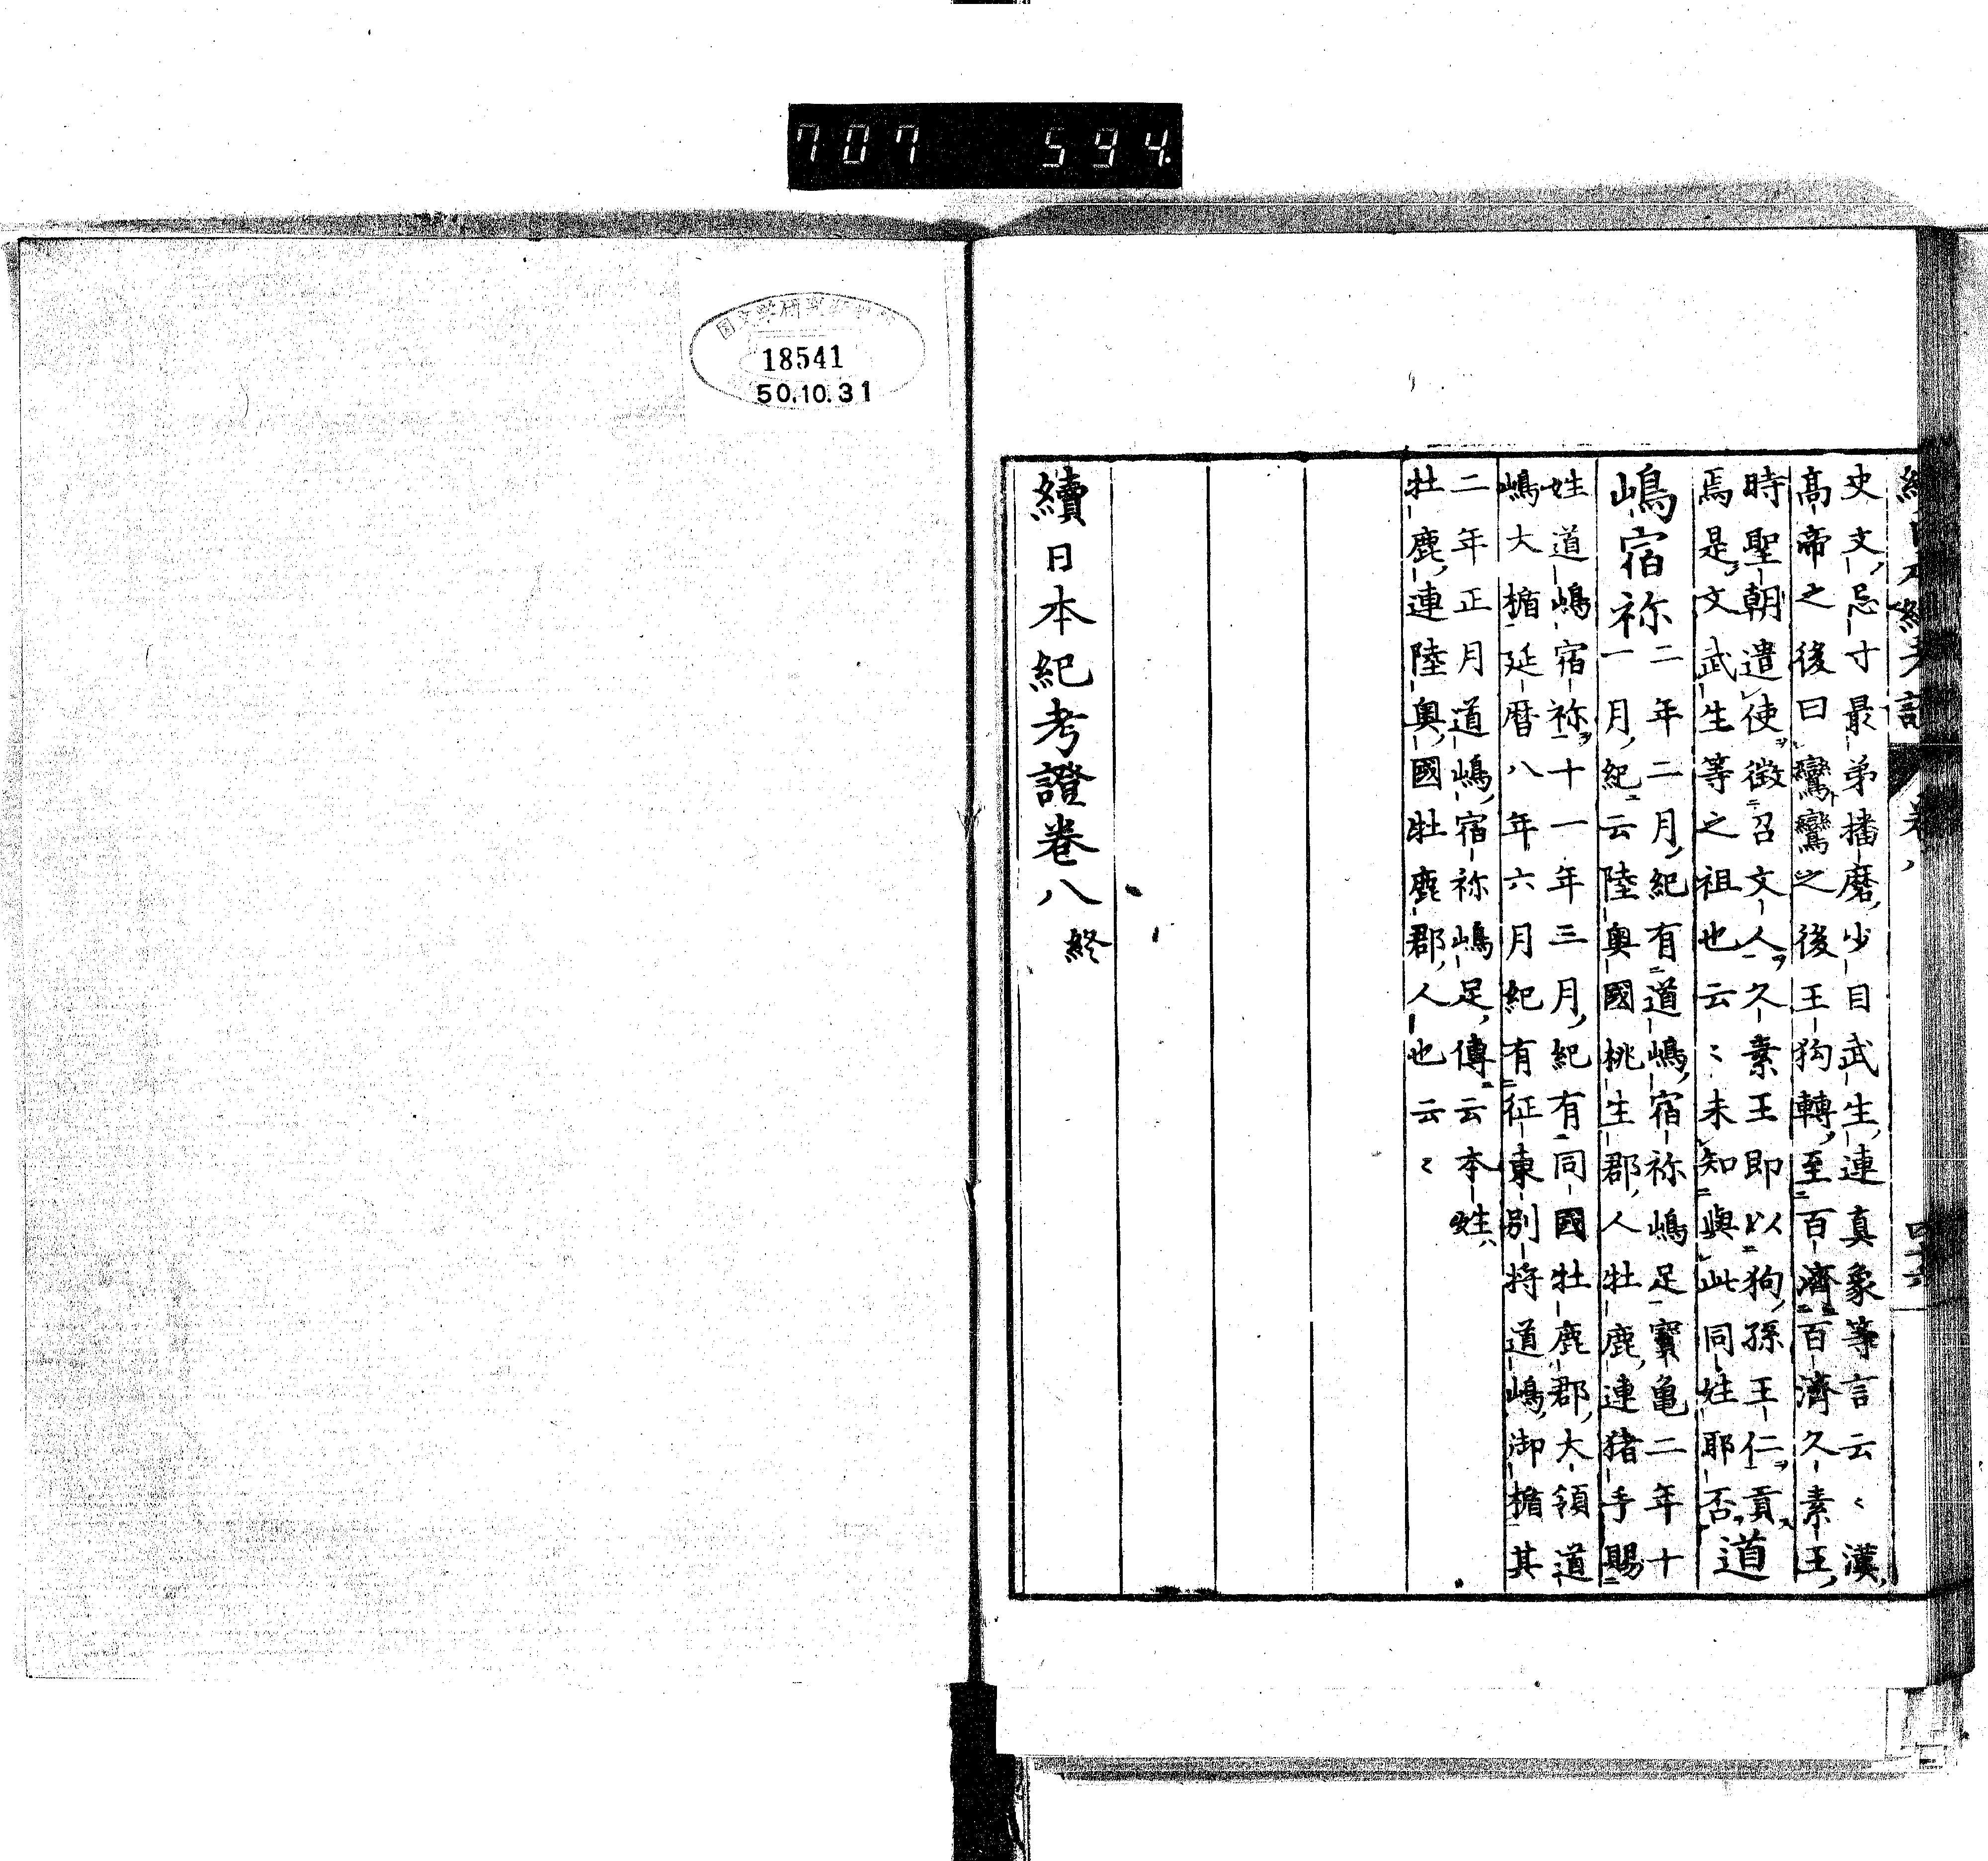 707 594
史文忌寸最弟播磨少目武生連真象等言云〻漢
高帝之後曰鸞鸞之後王狗轉至百濟百濟久素王
時聖朝遣使徴召文人久素王即以狗孫王仁貢
焉是文武生等之祖也云〻未知與此同姓耶否
道
嶋宿祢
二年二月紀有道嶋宿祢嶋足寶亀二年十
一月紀云陸奥國桃生郡人牡鹿連猪手賜
姓道嶋宿祢十一年三月紀有同國牡鹿郡大領道
嶋大楯延暦八年六月紀有征東別将道嶋御楯其
二年正月道嶋宿祢嶋足傳云本姓
牡鹿連陸奥國牡鹿郡人也云〻
續日本紀考證卷八終
18541
50.10.31